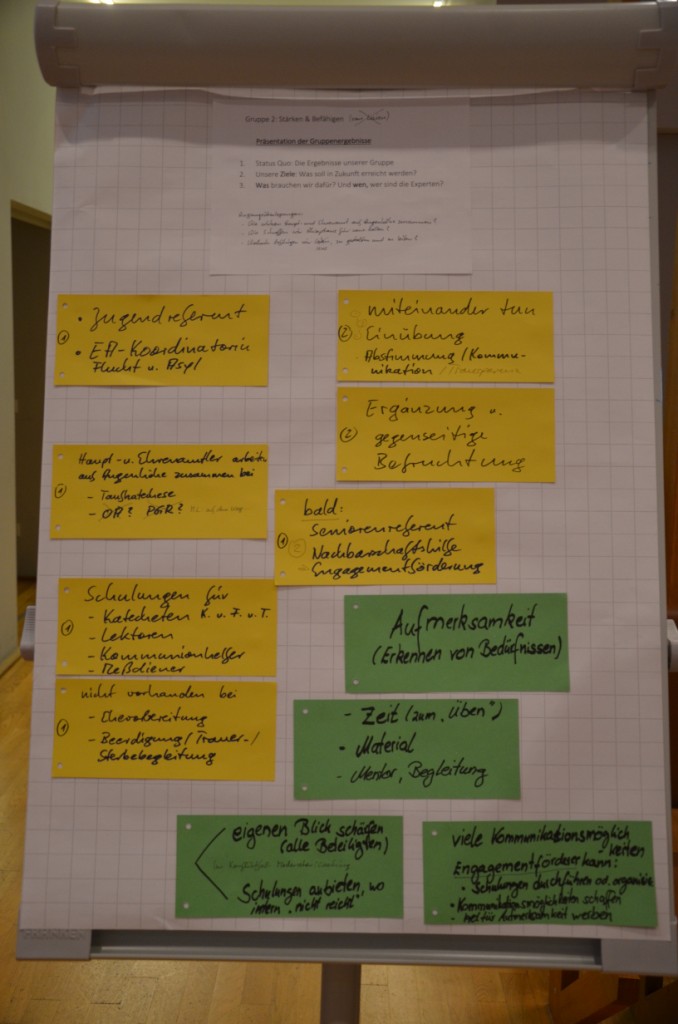 Gruppe 2: Stärken & Befähigen
Präsentation der Gruppenergebnisse
1. Status Quo: Die Ergebnisse unserer Gruppe
2. Unsere Ziele: Was soll in Zukunft erreicht werden?
3. Was brauchen wir dafür? Und wen, wer sind die Experten?
1
• Jugendreferent
• EA-Koordinatorin
Flucht u. Asyl
2
miteinander tun
Einübung
Abstimmung / Kommu-
nikation / Transparenz
2
Ergänzung u.
gegenseitige
Befruchtung
1
Haupt- u. Ehrenamtler arbeiten
auf Augenhöhe zusammen bei
- Taufkatechese
- OR? PGR?
1
bald:
Seniorenreferent
Nachbarschaftshilfe
Engagementförderung
1
Schulungen für
- Katecheten K. u. F. u. T.
- Lektoren
- Kommunionhelfer
- Meßdiener
1
nicht vorhanden bei
- Ehevorbereitung
- Beerdigung / Trauer- /
Sterbebegleitung
Aufmerksamkeit
(Erkennen von Bedüfnissen)
- Zeit (zum "Üben")
- Material
- Mentor, Begleitung
eigenen Blick schärfen
(alle Beteiligten)
Schulungen anbieten, wo
intern "nicht reicht"
viele Kommunikationsmöglich
keiten
Engagementförderer kann:
• Schulungen durchführen od. organisie
• Kommunikationsmöglichkeiten schaffen
für Aufmerksamkeit werben